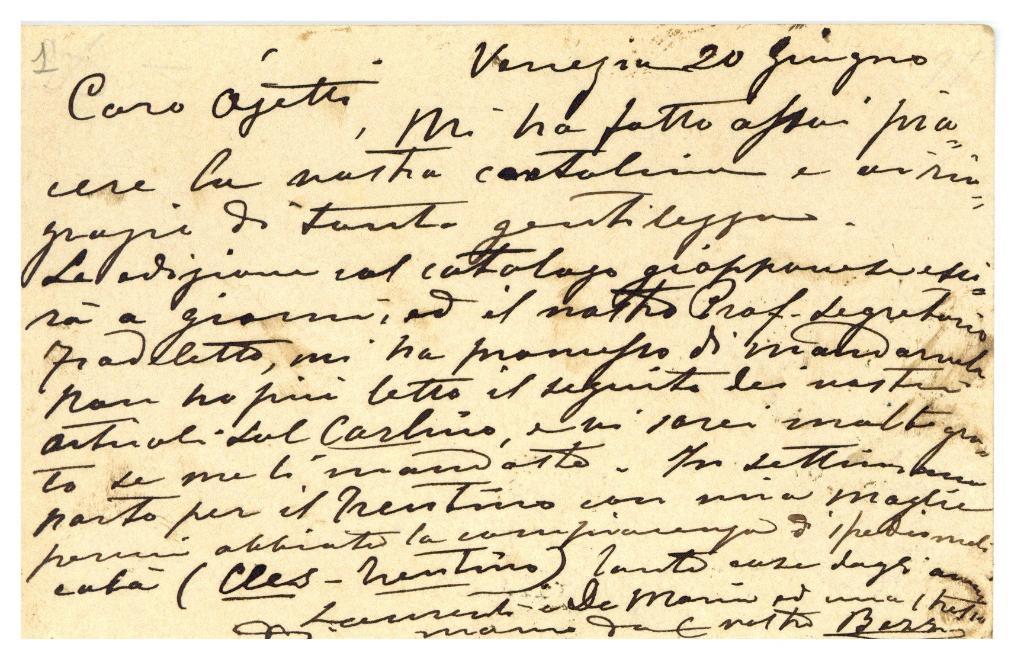 1
Venezia 20 Giugno
Caro Ojetti
, Mi ha fatto assai pia=
cere la vostra cartolina e vi rin=
grazio di tanta gentilezza.
La edizione sul catalogo giapponese usci=
rà a giorni, ed il nostro Prof. Segretario
Fradeletto, mi ha promesso di mandarvela
Non ho più letto il seguito dei vostri
articoli sul Carlino, e vi sarei molto gra=
to se me li mandaste. In settimana
parto per il Trentino con mia moglie
perciò abbiate la compiacenza di spedirmeli
colà (Cles - Trentino) Tante cose dagli amici
Laurenti e De Maria ed una stretta
Di mano dal vostro Bezzi